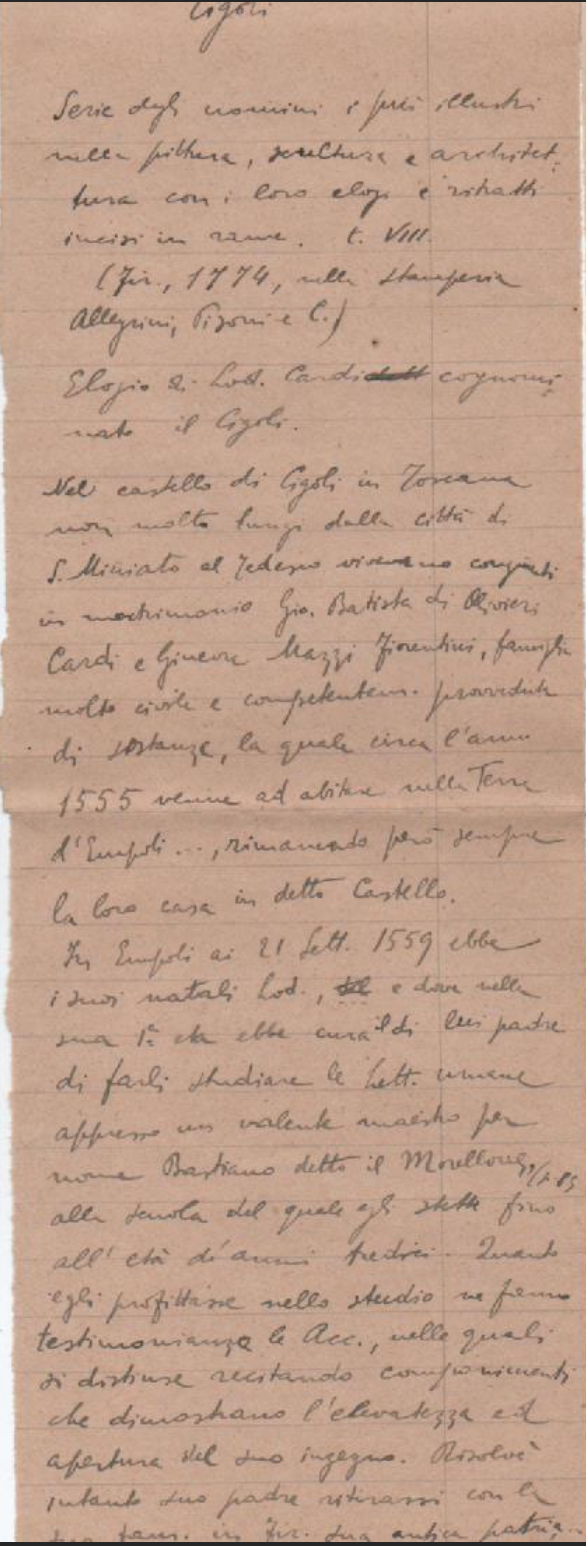 Cigoli
Serie degli uomini i più illustri
nella pittura, scultura e architet-
tura con i loro elogi e ritratti
incisi in rame. t. VIII.
(Fir., 1774, nella stamperia
Allegrini, Pisoni e C.)
Elogio di Lod. Cardi cognomi-
nato il Cigoli.
Nel castello di Cigoli in Toscana
non molto lungi dalla città di
S. Miniato al Tedesco vivevano congiunti
in matrimonio Gio. Batista di Olivieri
Cardi e Ginevra Mazzi Fiorentini, famiglia
molto civile e competentem. provveduta
di sostanze, la quale circa l'anno
1555 venne ad abitare nella Terra
d'Empoli ..., rimanendo però sempre
la loro casa in detto Castello.
In Empoli ai 21 Sett. 1559 ebbe
i suoi natali Lod., e dove nella
sua 1ª età ebbe cura il di lui padre
di farli studiare le Lett. umane
appresso un valente maestro per
nome Bastiano detto il Morellone,
alla scuola del quale egli stette fino
all' età d'anni tredici. Quanto
egli profittasse nello studio ne fanno
testimonianza le Acc., nelle quali
si distinse recitando componimenti
che dimostrano l'elevatezza ed
apertura del suo ingegno. Risolvè
intanto suo padre ritirarsi con la
sua fam. in Fir. sua antica patria...